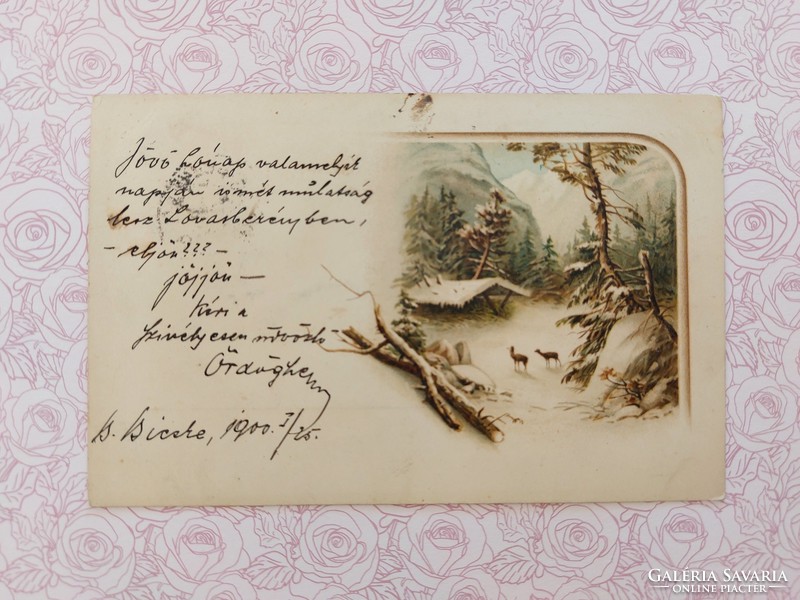 Jövő hónap valamelyik
napján ismét mulatság
lesz Lovasberényben,
- eljön??? -
jöjjön -
kéri a
szivélyesen üdvözlő
B. Bicske, 1900. I/25.
GALÉRIA SAVARIA
ONLINE PIACTÉR